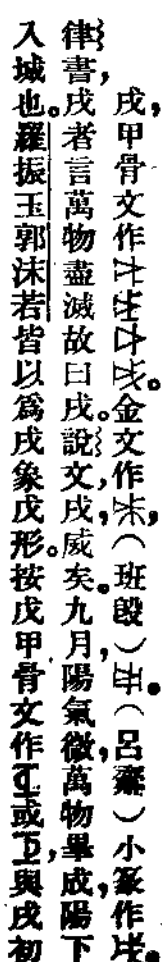 戌，甲骨文作。金文作，（班𣪘）。（呂鼒）小篆作。
律書，戌者言萬物盡滅故曰戌。說文，戌，威矣。九月，陽氣微，萬物畢成，陽下
入城也。羅振玉郭沫若皆以爲戌象戊形。按戊甲骨文作或，與戌初